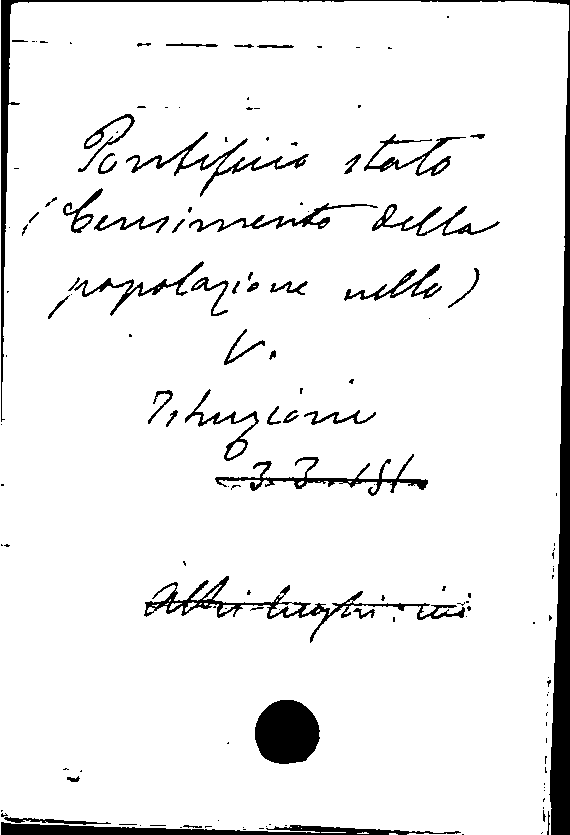 Pontificio stato
(Censimento della
popolazione nello)
V.
Istruzioni
3.3.151.
Altri luoghi: ivi